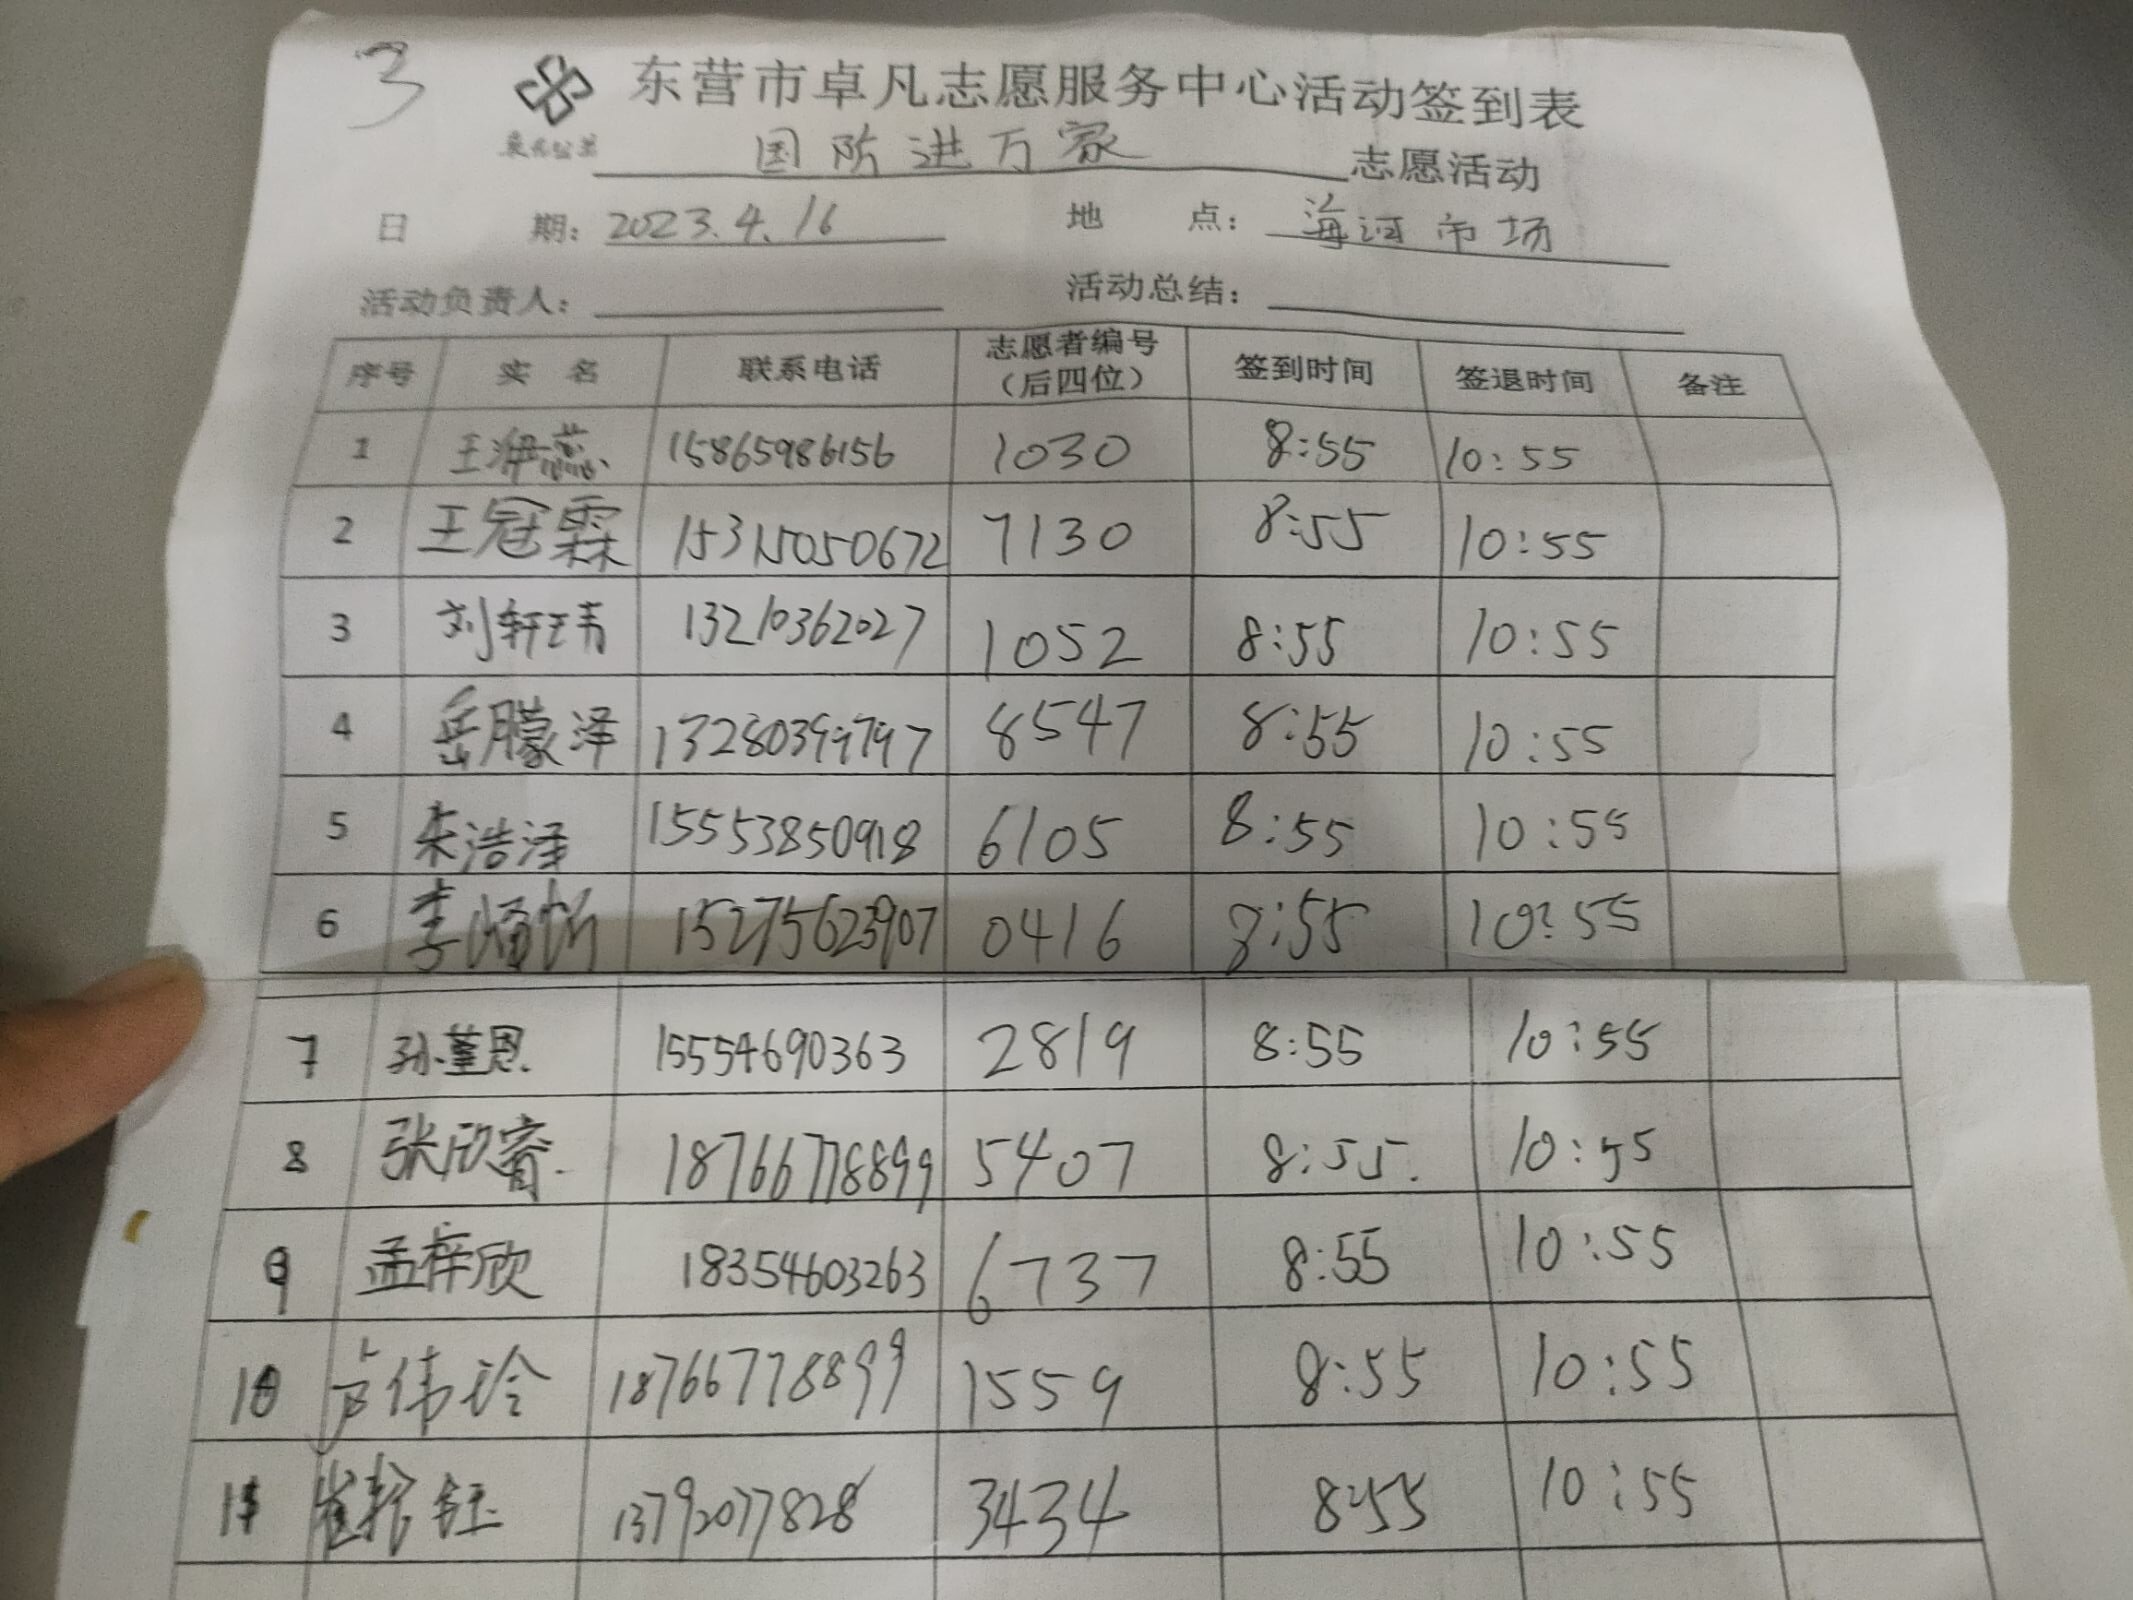 3
东营市卓凡志愿服务中心活动签到表
国防进万家 志愿活动
日 期: 2023.4.16 地 点: 海河市场
活动负责人: 活动总结:
序号 实 名 联系电话 志愿者编号(后四位) 签到时间 签退时间 备注
1 15865986156 1030 8:55 10:55
2 王冠霖 15315050672 7130 8:55 10:55
3 刘轩玮 13210362027 1052 8:55 10:55
4 岳朦泽 13280399797 8547 8:55 10:55
5 朱浩泽 15553850918 6105 8:55 10:55
6 15275623907 0416 8:55 10:55
7 孙堇恩 15554690363 2819 8:55 10:55
8 张欣睿 18766778899 5407 8:55 10:55
9 孟梓欣 18354603263 6737 8:55 10:55
10 卢伟玲 18766778899 1559 8:55 10:55
11 13792077828 3434 8:55 10:55